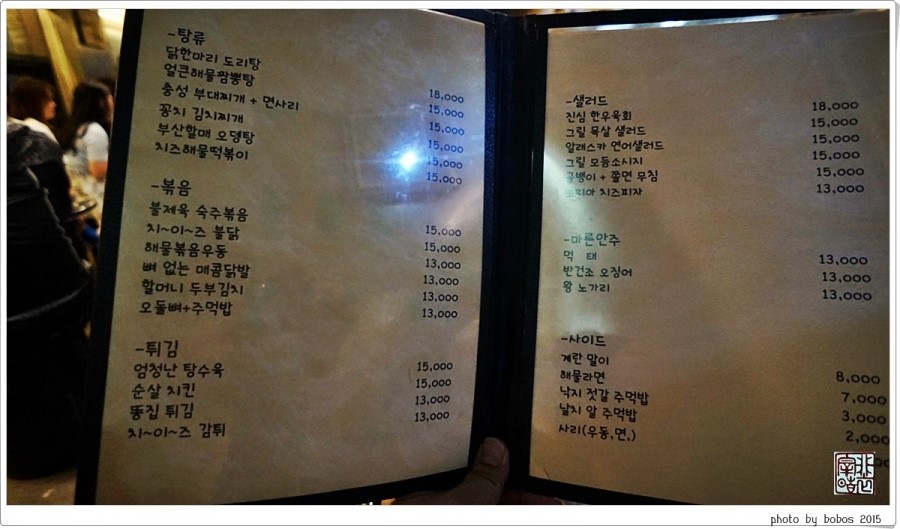 -탕류
닭한마리 도리탕 18,000
얼큰해물짬뽕탕 15,000
충성 부대찌개 + 면사리 15,000
꽁치 김치찌개 15,000
부산할매 오뎅탕 15,000
치즈해물떡볶이 15,000
-볶음
불제육 숙주볶음 15,000
치~이~즈 불닭 15,000
해물볶음우동 13,000
뼈 없는 매콤닭발 13,000
할머니 두부김치 13,000
오돌뼈+주먹밥 13,000
-튀김
엄청난 탕수육 15,000
순살 치킨 15,000
똥집 튀김 13,000
치~이~즈 감튀 13,000
-샐러드
진심 한우육회 18,000
그릴 목살 샐러드 15,000
알래스카 연어샐러드 15,000
그릴 모듬소시지 15,000
골뱅이 + 쫄면 무침 15,000
치즈피자 13,000
-마른안주
먹 태 13,000
반건조 오징어 13,000
왕 노가리 13,000
-사이드
계란 말이 8,000
해물라면 7,000
낙지 젓갈 주먹밥 3,000
날치 알 주먹밥 2,000
사리(우동,면,)
photo by bobos 2015